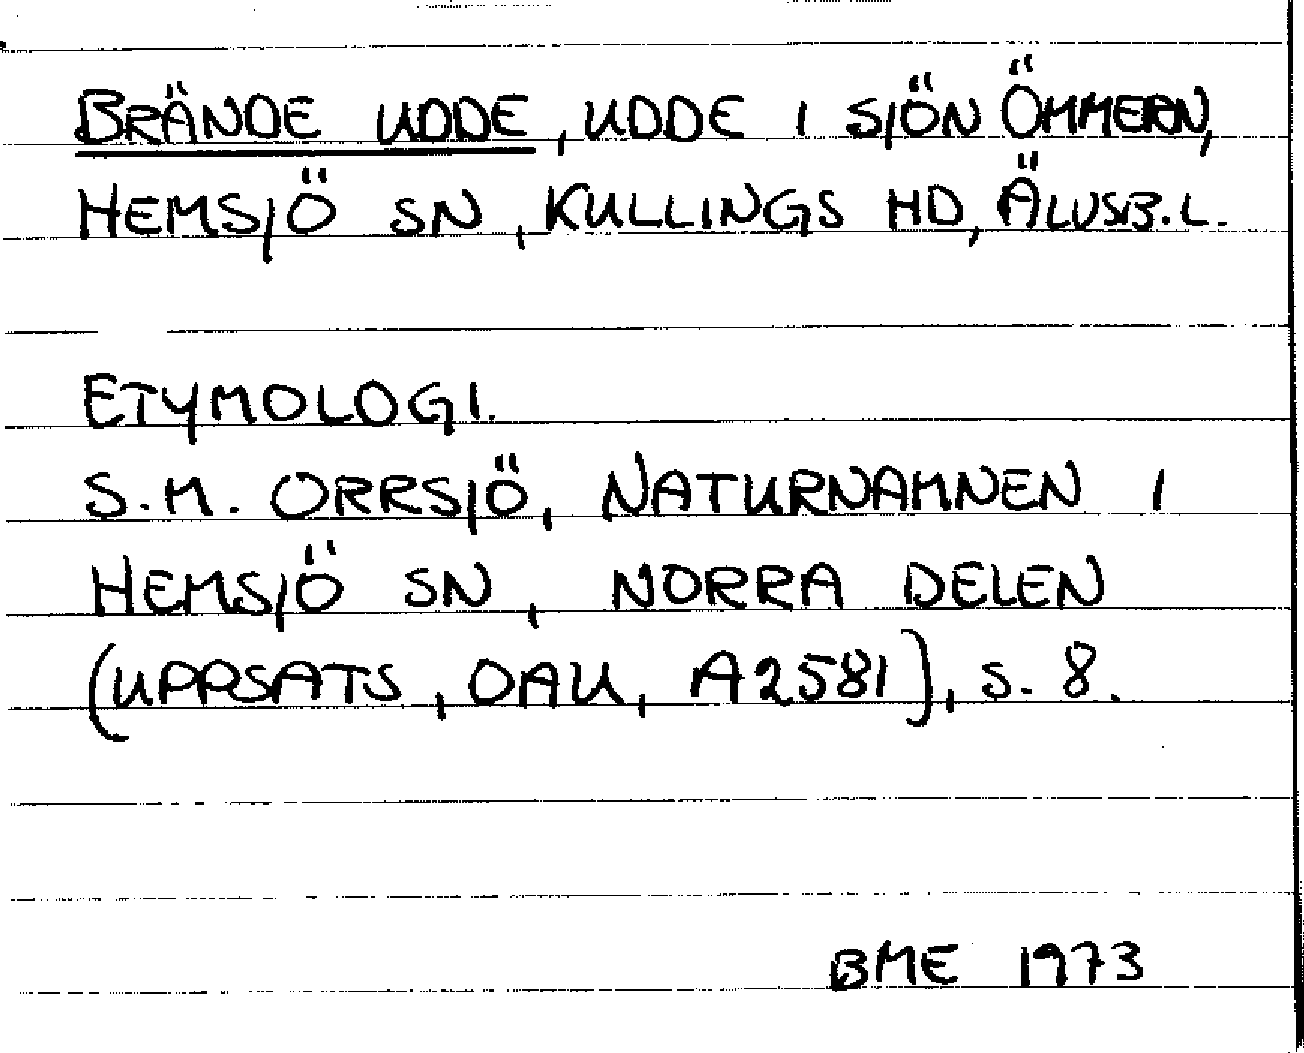 BRÄNDE UDDE, UDDE I SJÖN ÖMMERN,
HEMSJÖ SN, KULLINGS HD, ÄLVSB.L.
ETYMOLOGI.
S.M. ORRSJÖ, NATURNAMNEN I
HEMSJÖ SN, NORRA DELEN
(UPPSATS, OAU, A2581), S. 8.
BME 1973